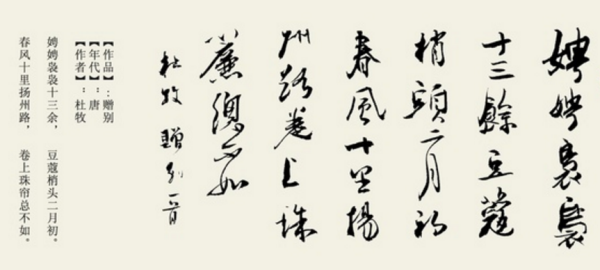 娉娉裊裊
十三餘豆蔻
梢頭二月初
春風十里揚
州路卷上珠
簾總不如
杜牧 贈別一首
【作品】：赠别
【年代】：唐
【作者】：杜牧
娉娉袅袅十三余， 豆蔻梢头二月初。
春风十里扬州路， 卷上珠帘总不如。